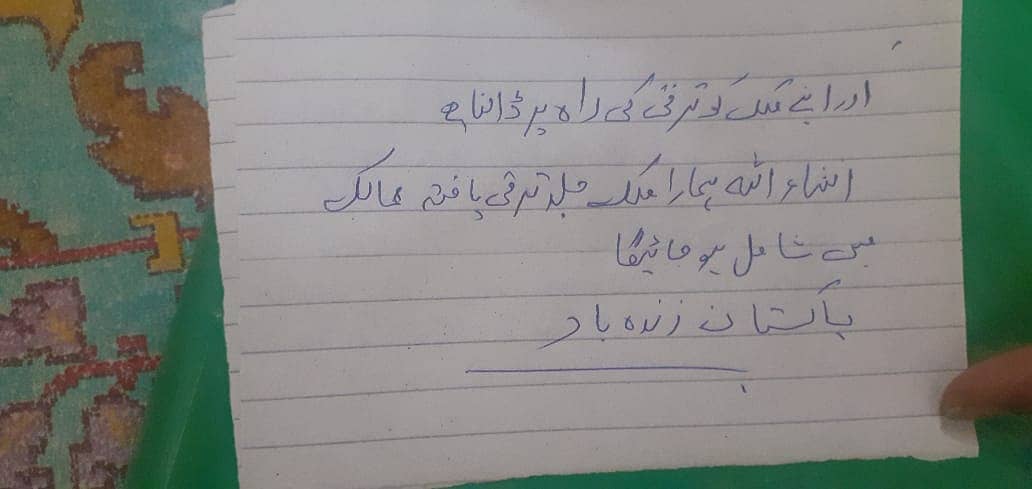 اور اپنے ملک کو ترقی کی راہ پر ڈالنا ہے
انشاء اللہ ہمارا ملک جلد ترقی یافتہ ممالک
میں شامل ہو جائیگا
پاکستان زندہ باد